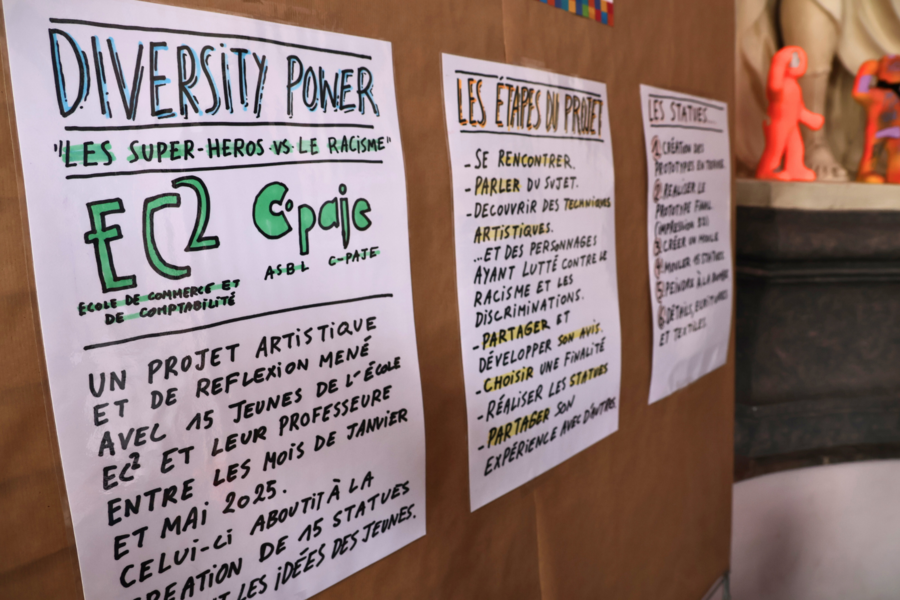 DIVERSITY POWER
"LES SUPER-HEROS VS LE RACISME"
EC2
ECOLE DE COMMERCE ET
DE COMPTABILITÉ
C-paje
ASBL C-PAJE
UN PROJET ARTISTIQUE
ET DE REFLEXION MENÉ
AVEC 15 JEUNES DE L'ÉCOLE
EC2 ET LEUR PROFESSEURE
ENTRE LES MOIS DE JANVIER
ET MAI 2025.
CELUI-CI ABOUTIT À LA
CREATION DE 15 STATUES
LES IDÉES DES JEUNES.
LES ÉTAPES DU PROJET
- SE RENCONTRER
- PARLER DU SUJET.
- DECOUVRIR DES TECHNIQUES
ARTISTIQUES.
...ET DES PERSONNAGES
AYANT LUTTÉ CONTRE LE
RACISME ET LES
DISCRIMINATIONS.
- PARTAGER ET
DÉVELOPPER SON AVIS.
- CHOISIR UNE FINALITÉ
- RÉALISER LES STATUES
- PARTAGER SON
EXPÉRIENCE AVEC D'AUTRES.
LES STATUES...
1 CRÉATION DES
PROTOTYPES EN TERRE.
2 REALISER LE
PROTOTYPE FINAL
(IMPRESSION 3D)
3 CRÉER UN MOULE
4 MOULER 15 STATUES
5 PEINDRE À LA BOMBE
6 DÉTAILS, ECRITURES
ET TEXTILES.